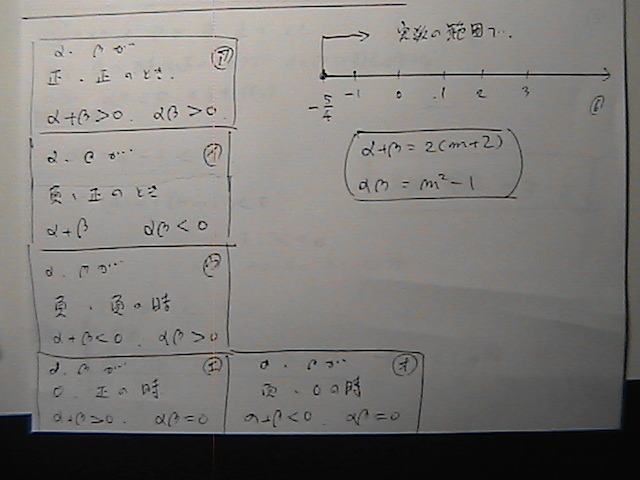 α、βが… ㋐
正、正のとき、
α+β>0. αβ>0.
α、βが… ㋑
負、正のとき
α+β αβ<0
α、βが… ㋒
負、負の時
α+β<0. αβ>0
α、βが… ㋓
0、正の時
α+β>0. αβ=0
α、βが… ㋔
負、0の時
α+β<0. αβ=0
実数の範囲で…
-5/4 -1 0 1 2 3
α+β=2(m+2)
αβ=m²-1